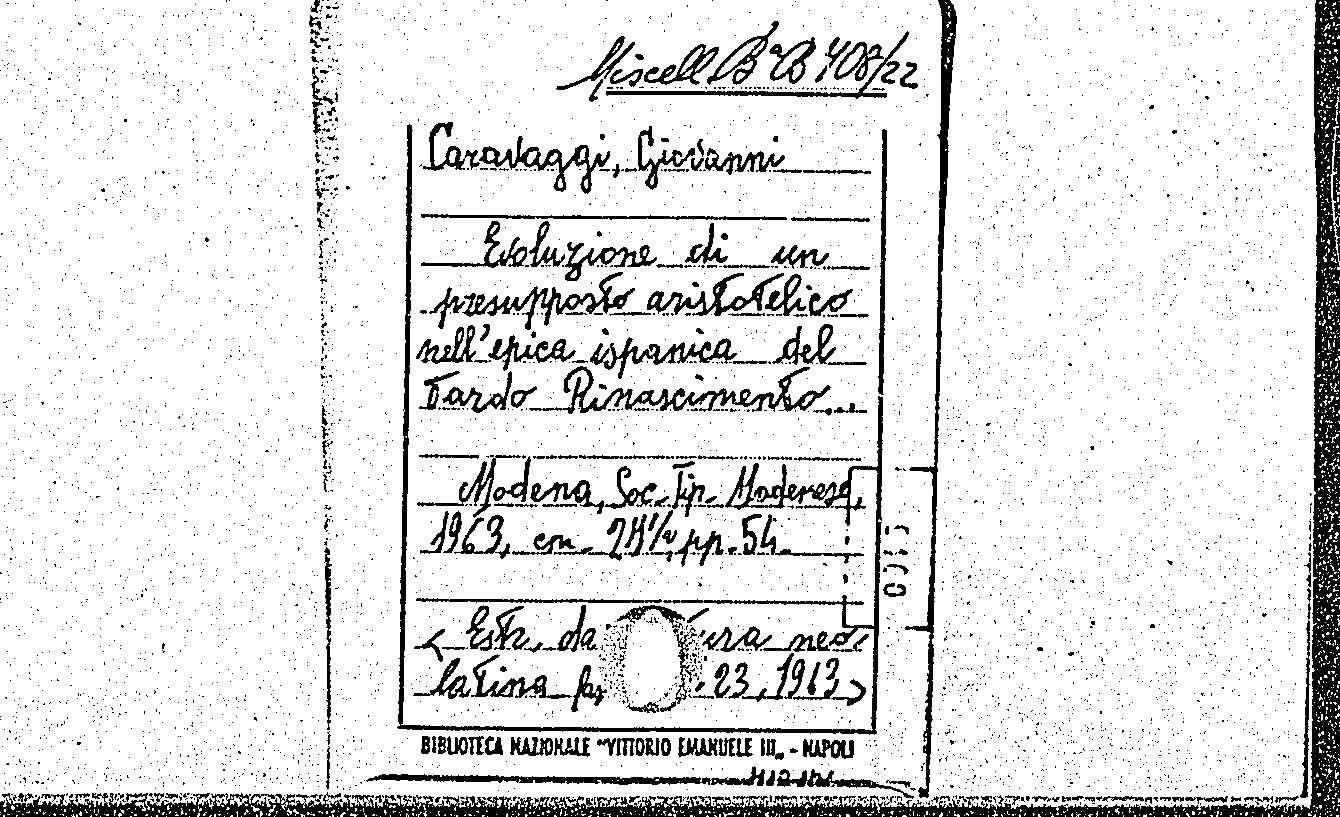 Miscell Bª B 408/22
Caravaggi, Giovanni
Evoluzione di un
presupposto aristotelico
nell'epica ispanica del
Tardo Rinascimento...
Modena, Soc. Tip. Moderese,
1963, cm. 24½, pp. 54.
< Estr. da ura neo,
latina 23, 1963 >
BIBLIOTECA NAZIONALE "VITTORIO EMANUELE III„ - NAPOLI